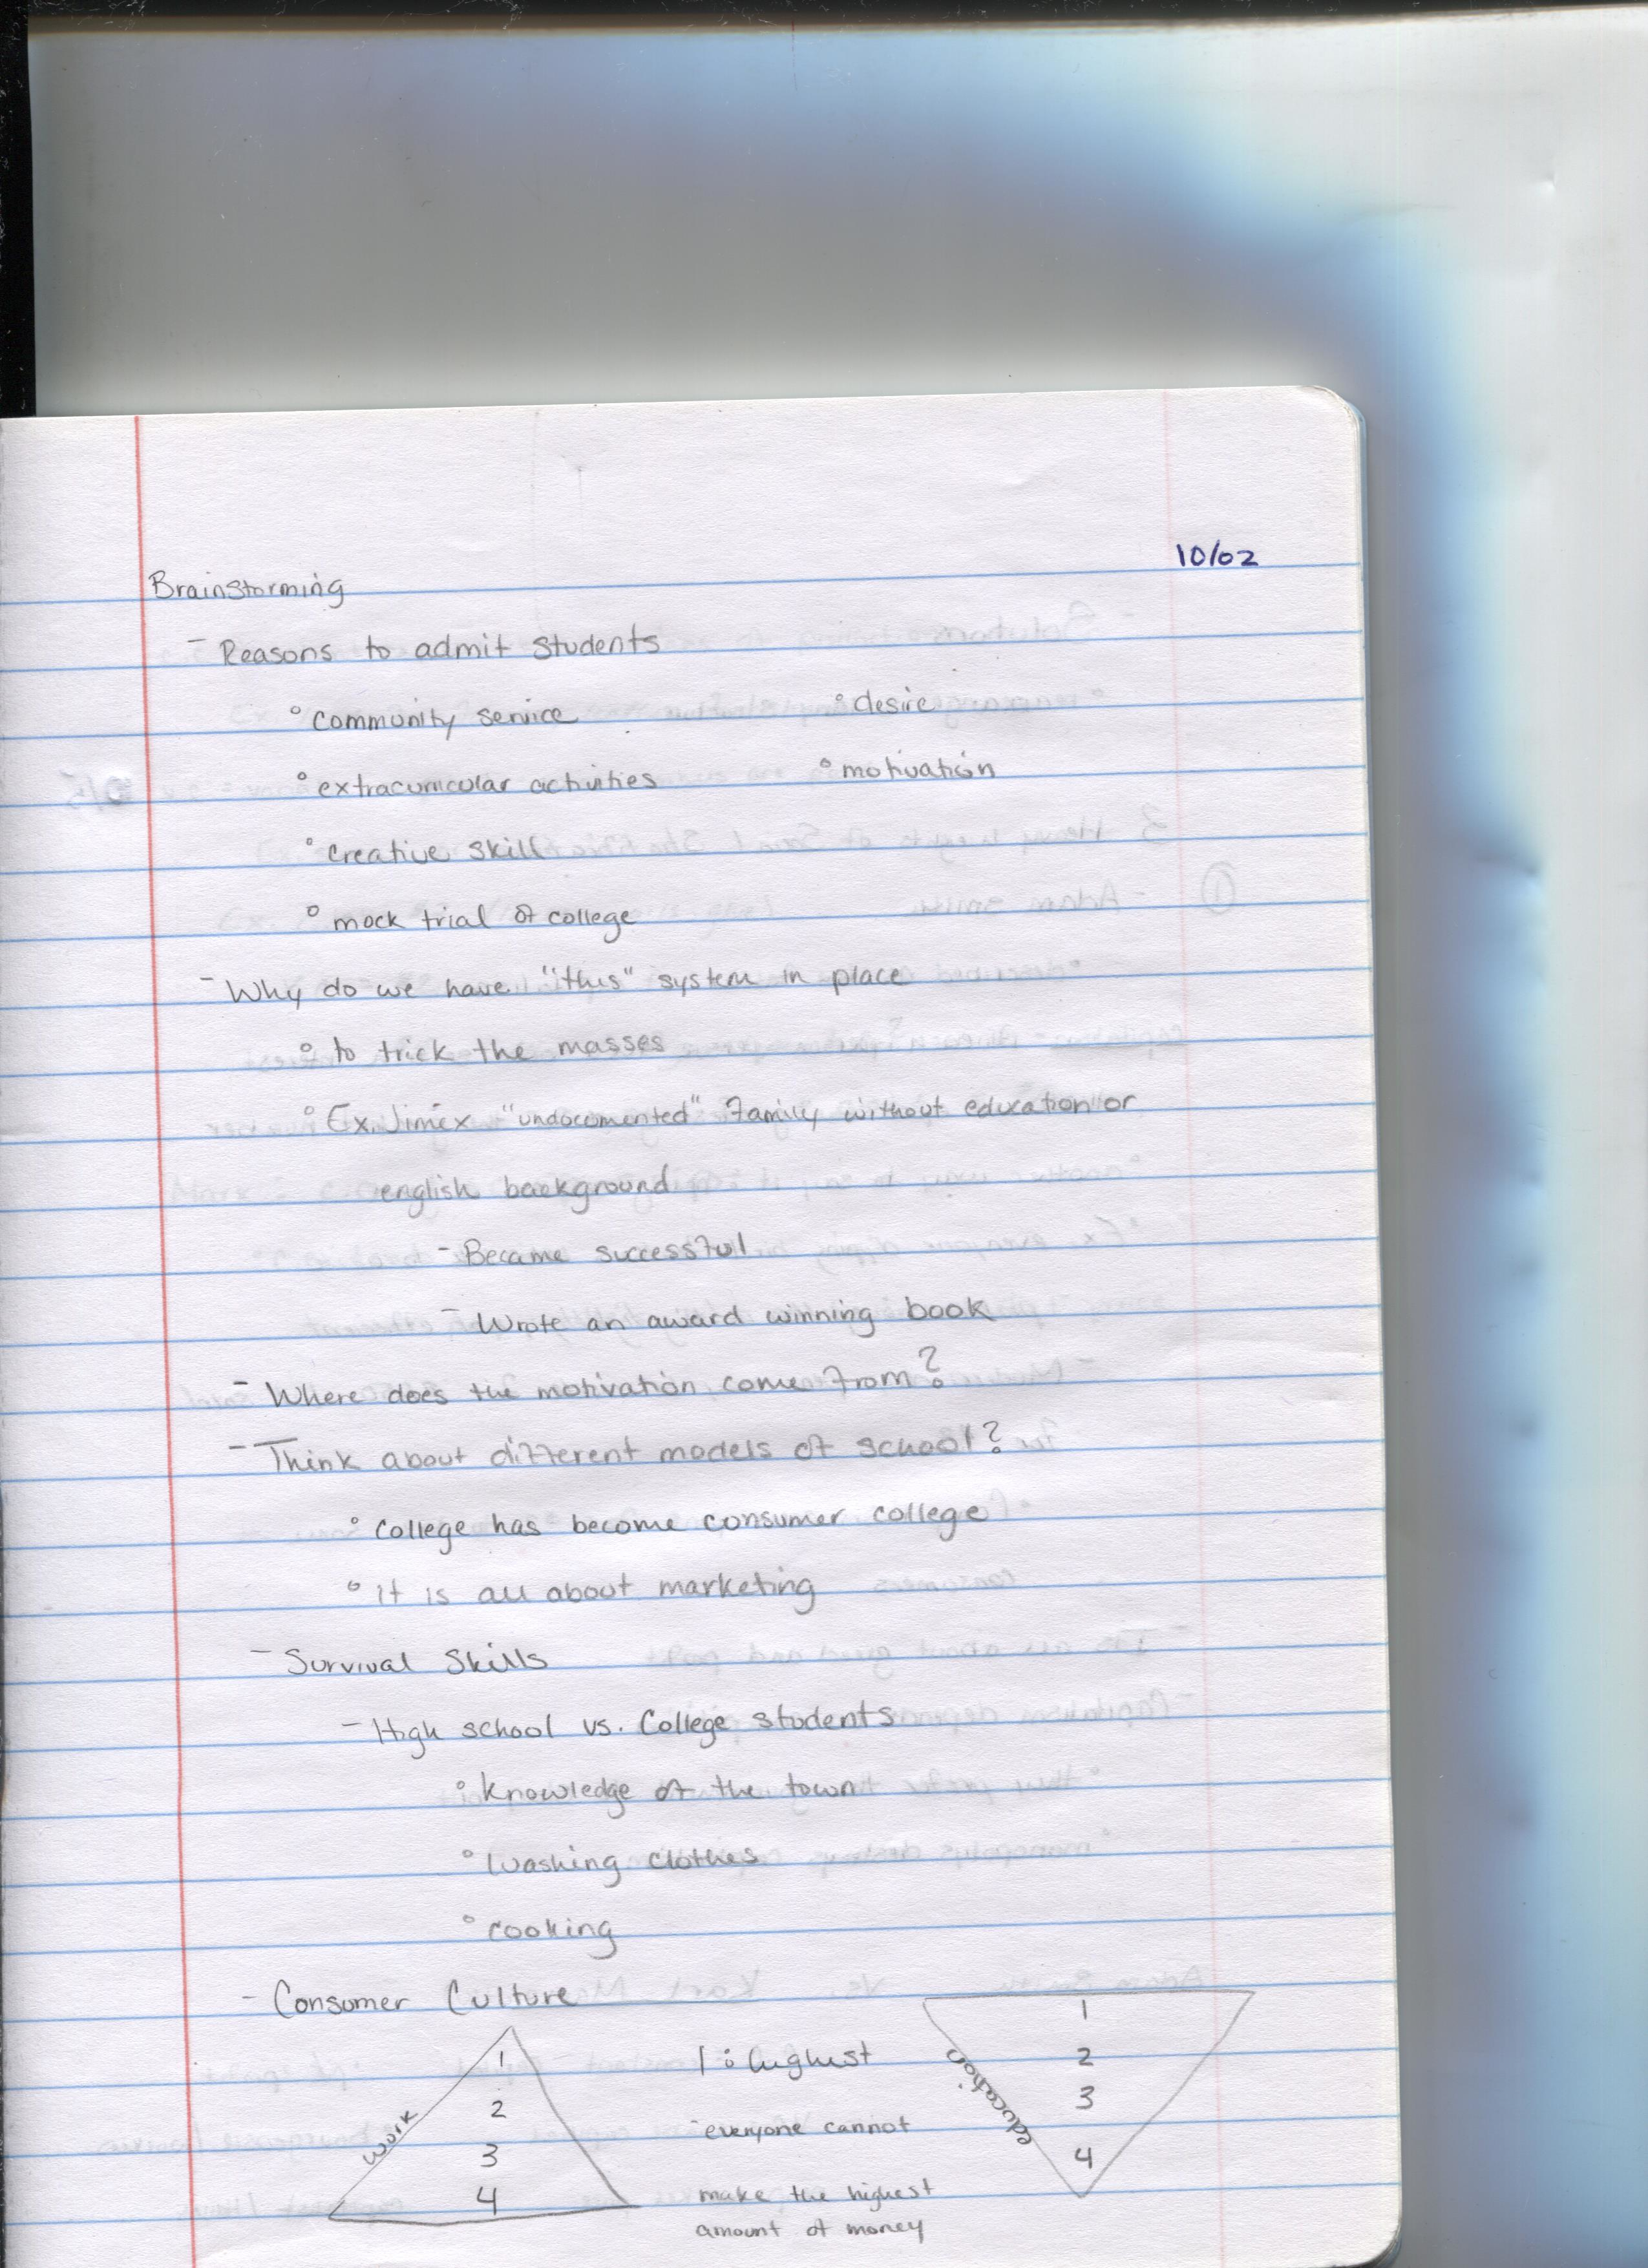 10/02
Brainstorming
- Reasons to admit students
° community service ° desire
° extracurricular activities ° motivation
° creative skill
° mock trial of college
- Why do we have "this" system in place
° to trick the masses
° Ex. Jimex "undocumented" family without education or
english background
- Became successful
- Wrote an award winning book
- Where does the motivation come from?
- Think about different models of school?
° College has become consumer college
° it is all about marketing
- Survival Skills
- High school vs. College students
° knowledge of the town
° washing clothes
° cooking
- Consumer Culture
work
1
2
3
4
1: highest
- everyone cannot
make the highest
amount of money
education
1
2
3
4